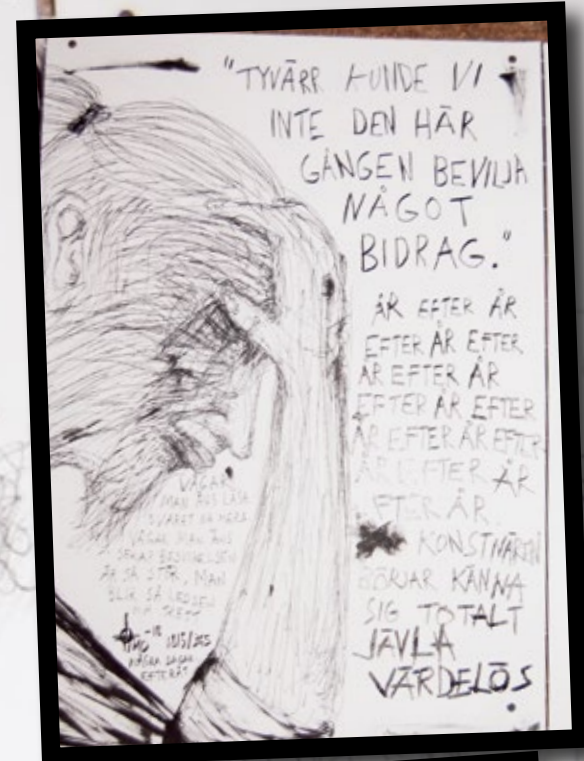 "TYVÄRR KUNDE VI
INTE DEN HÄR
GÅNGEN BEVILJA
NÅGOT
BIDRAG."
ÅR EFTER ÅR
EFTER ÅR EFTER
ÅR EFTER ÅR
EFTER ÅR EFTER
ÅR EFTER ÅR EFTER
ÅR EFTER ÅR
EFTER ÅR.
KONSTNÄREN
BÖRJAR KÄNNA
SIG TOTALT
JÄVLA
VÄRDELÖS
VÅGAR
MAN ENS LÄSA
SVARET NÅ MERA
VÅGAR MAN ENS
SÖKA? BESVIKELSEN
ÄR SÅ STOR, MAN
BLIR SÅ LEDSEN
-18 1015/365
NÅGRA DAGAR
EFTERÅT